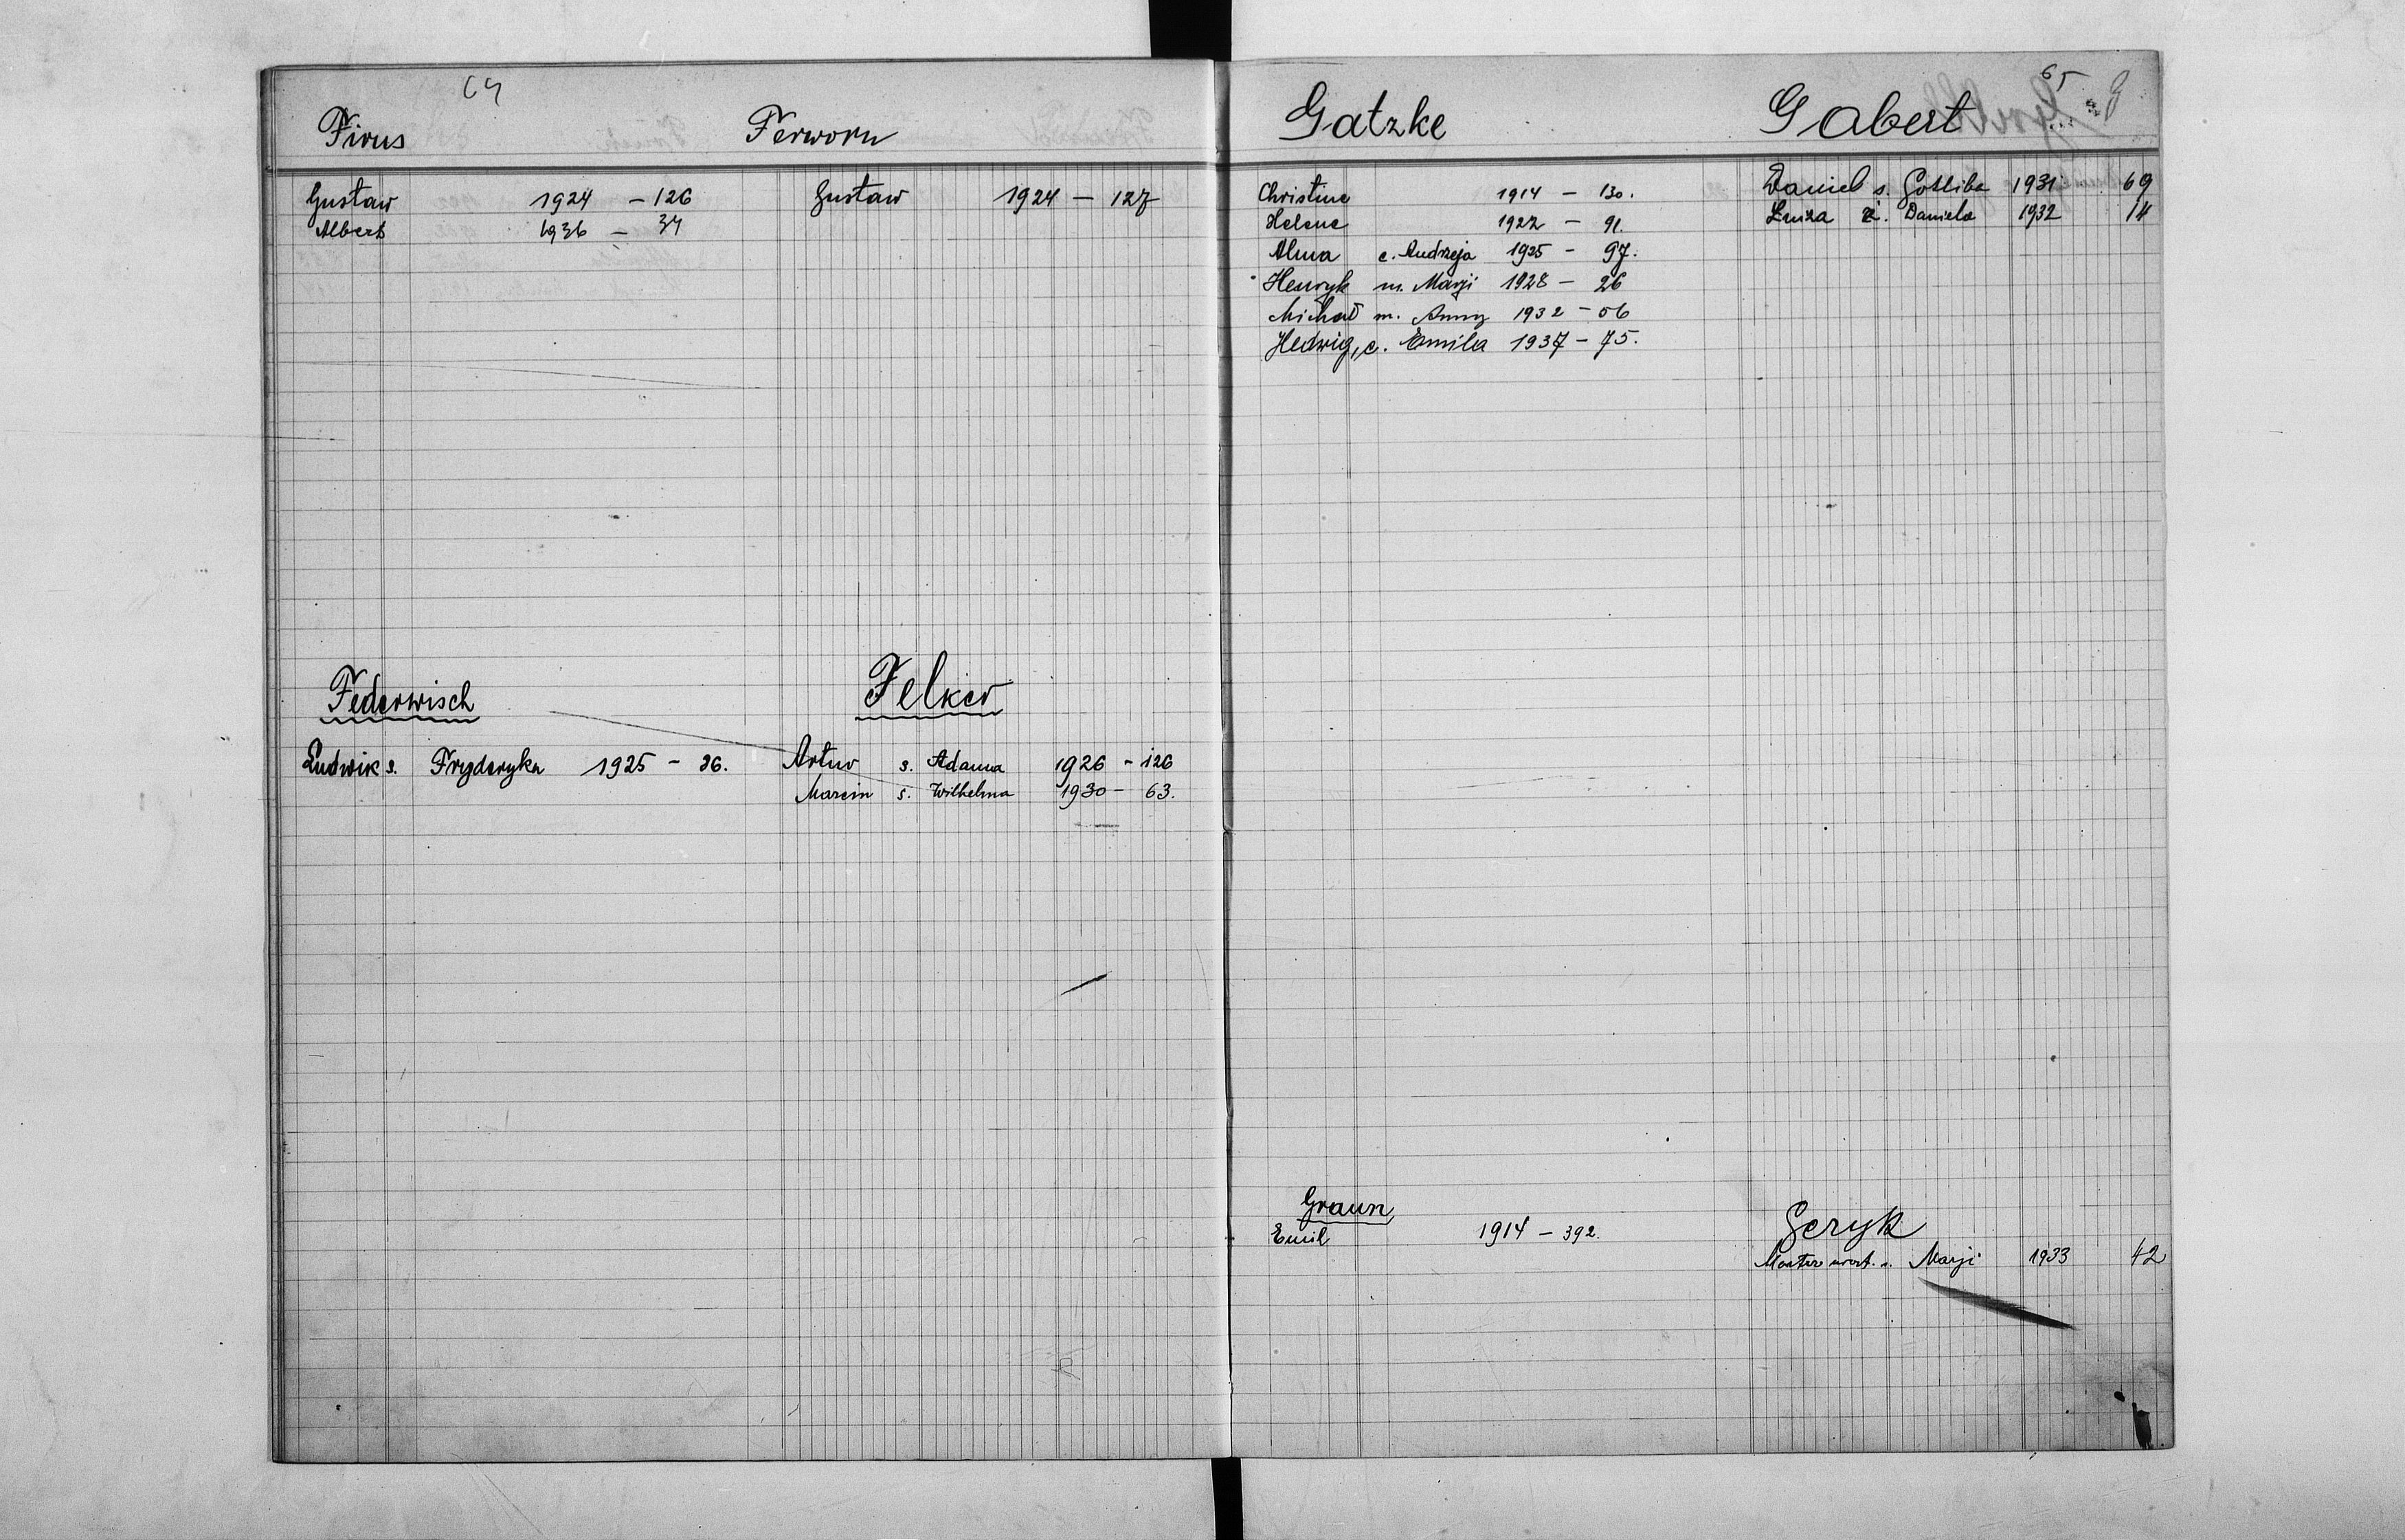 64
Firus
Gustaw 1924 - 126
Albert 1936 - 34
Ferworn
Gustaw 1924 - 127
Federwisch
Ludwik s. Fryderyka 1925 - 26.
Felker
Artur s. Adama 1926 - 126
Marcin s. Wilhelma 1930 - 63.
65
Gatzke
Christine 1914 - 130.
Helene 1922 - 91.
Alma c. Andrzeja 1925 - 97.
Henryk m. Marji 1928 - 26
Michał m. Anny 1932 - 56
Hedwig, c. Emila 1937 - 75.
Gabert
Daniel s. Gotliba 1931 69
Luiza ż. Daniela 1932 14
Graun
Emil 1914 - 392.
Geryk
Marji 1933 42